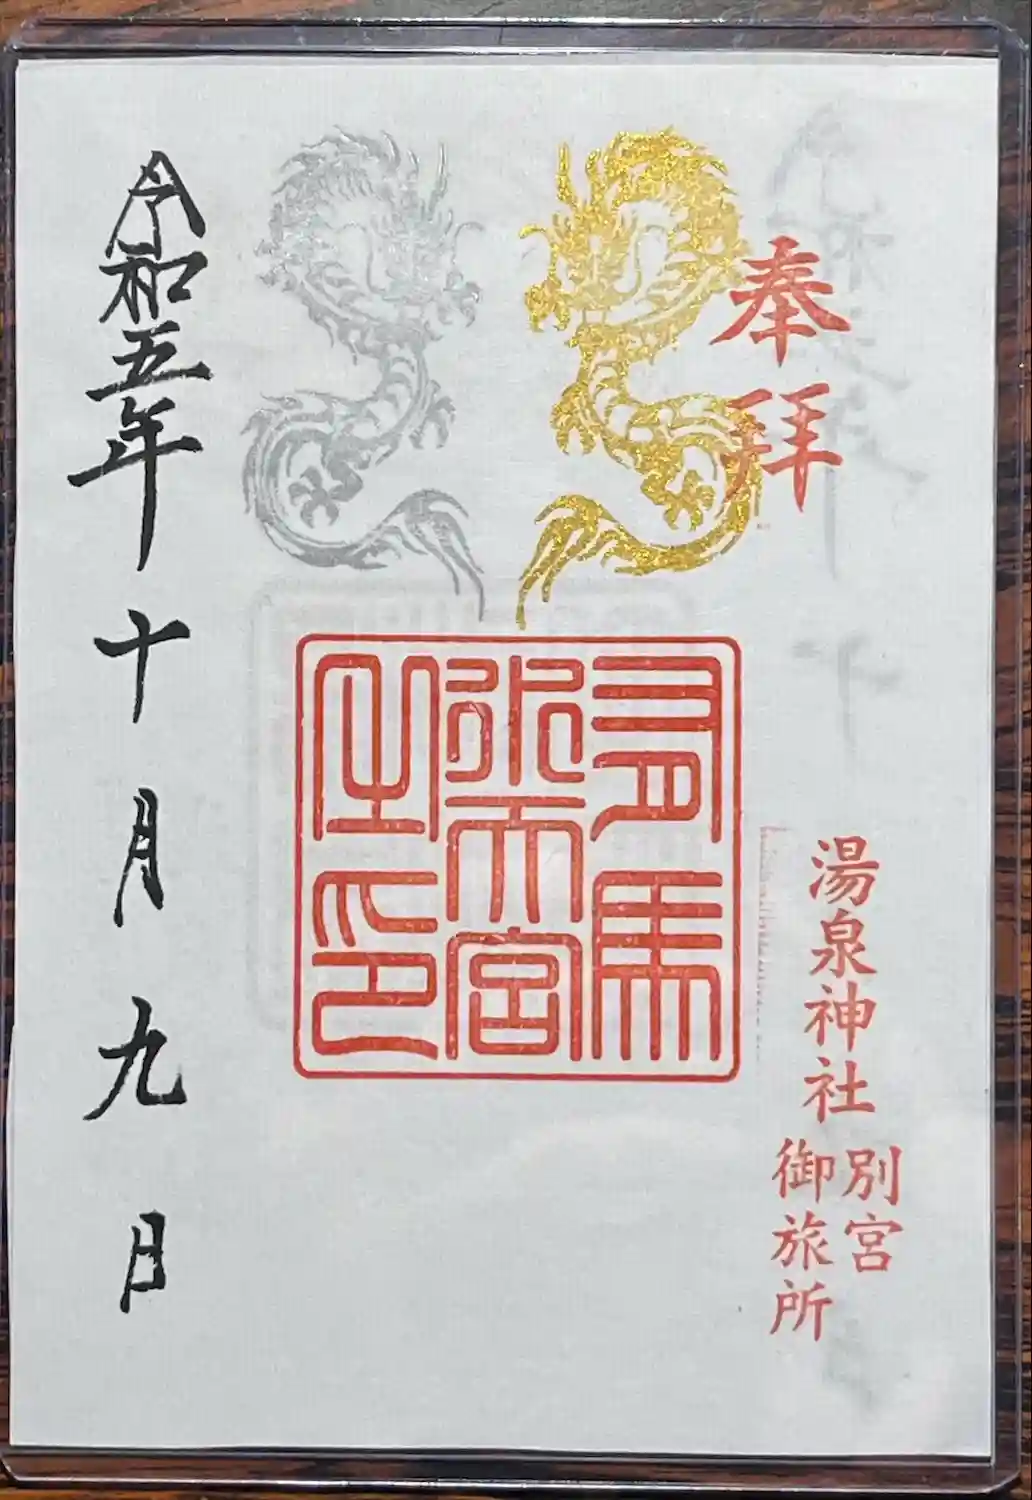 奉拜
湯泉神社
別宮
御旅所
有馬
水天宮
之印
令和五年十月九日